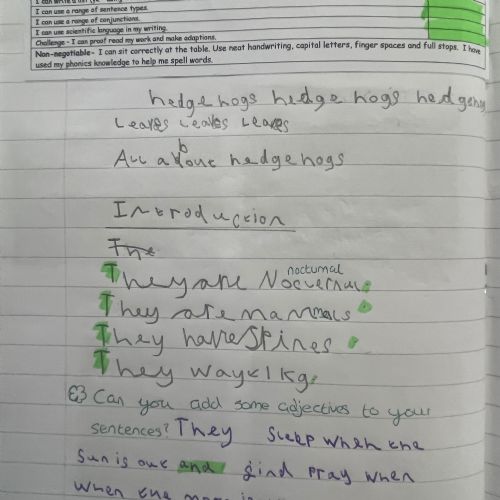 I can use a range of sentence types.
I can use a range of conjunctions.
I can use scientific language in my writing.
Challenge - I can proof read my work and make adaptions.
Non-negotiable - I can sit correctly at the table. Use neat handwriting, capital letters, finger spaces and full stops. I have
used my phonics knowledge to help me spell words.
hedgehogs hedgehogs hedgehog
Leaves Leaves Leaves
All about hedgehogs
Introduction
The
nocturnal
They are Nocvernul.
They are mammals.
They have Spines.
They way <1 kg.
Can you add some adjectives to your
sentences? They sleep when the
Sun is out and find pray when
when the moon is